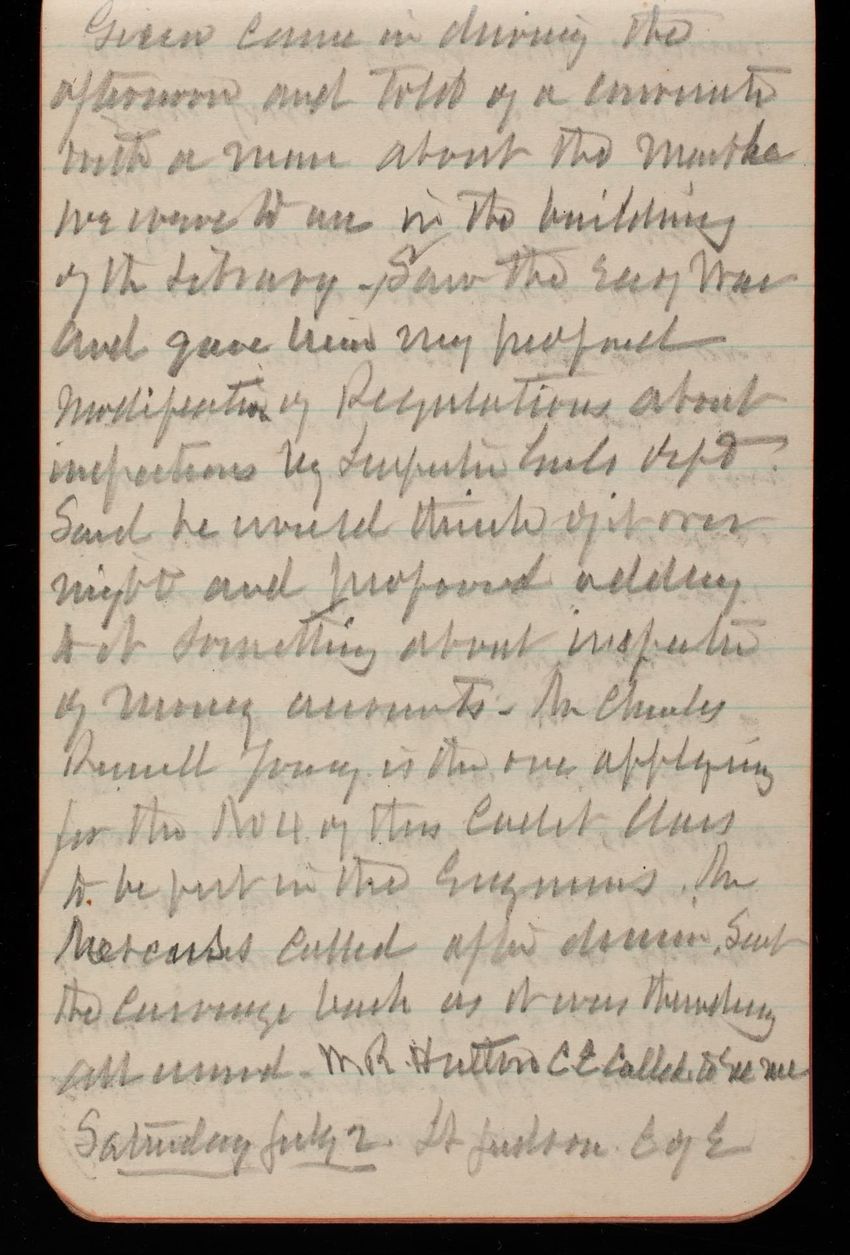 Green came in during the
afternoon and told of a
with a man about the Marble
we were to use in the building
of the Library - Saw the Secy War
and gave him my proposed
modification of Regulations about
inspections by Inspector Genls dept.
Said he would think of it over
night and proposed adding
to it something about inspection
of money accounts - Mr Charles
Russell Young is the one applying
for the No 4 of this Cadet Class
to be put in the Engineers. Mr
called after dinner. Sent
the Carriage back as it was thundering
all round - W R Hutton C E Called to see me
Saturday July 2. Lt Judson C of E